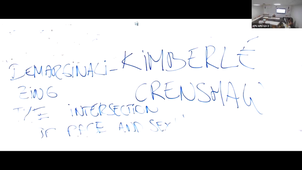 DEMARGINALI- KIMBERLÉ
ZING CRENSHAW
THE INTERSECTION
OF RACE AND SEX